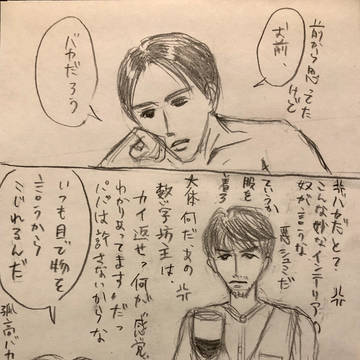 前から思ってた
けど
お前、
バカだろう
バカだと?
こんな妙なインテリアの
奴が言うな
悪シュミだ
ていうか
服を
着ろ
大体何だあの
数学坊主は、
カイ返せっ何が「感覚
わかりあってます」だっ
パパは許さないからな
いつも目で物を
言うから
こじれるんだ
孤高バカ